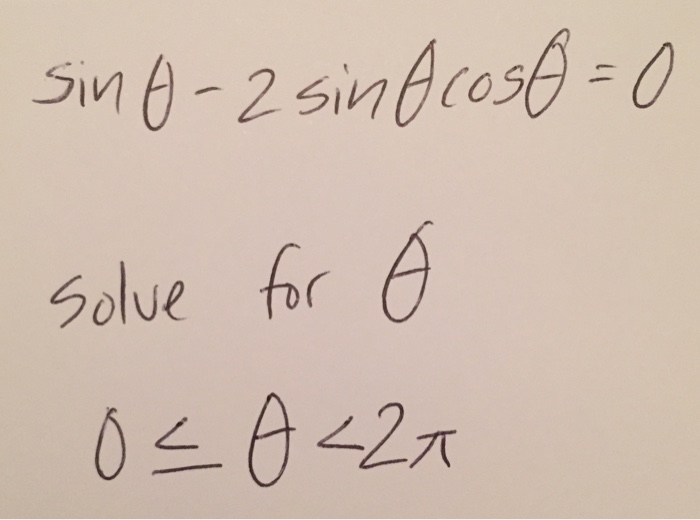 sin θ - 2 sin θ cos θ = 0
solve for θ
0 ≤ θ < 2π